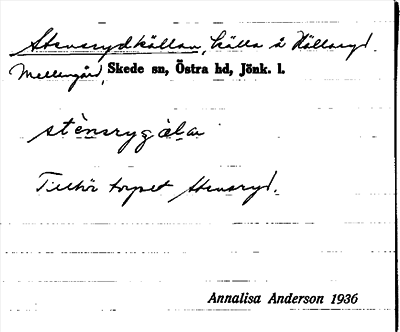 Stensrydkällan, källa å Hällaryd.
Mellangård, Skede sn, Östra hd, Jönk. l.
Tillhör torpet Stensryd.
Annalisa Anderson 1936